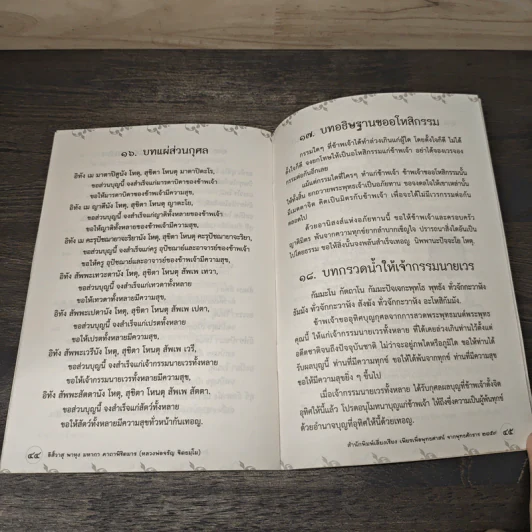 ๑๖. บทแผ่ส่วนกุศล
อิทัง เม มาตาปิตูนัง โหตุ, สุขิตา โหนตุ มาตาปิตะโร,
ขอส่วนบุญนี้ จงสำเร็จแก่มารดาบิดาของข้าพเจ้า
ขอให้มารดาบิดาของข้าพเจ้ามีความสุข,
อิทัง เม ญาตีนัง โหตุ, สุขิตา โหนตุ ญาตะโย,
ขอส่วนบุญนี้ จงสำเร็จแก่ญาติทั้งหลายของข้าพเจ้า
ขอให้ญาติทั้งหลายของข้าพเจ้ามีความสุข,
อิทัง เม คะรุปัชฌายาจะริยานัง โหตุ, สุขิตา โหนตุ คะรุปัชฌายาจะริยา,
ขอส่วนบุญนี้ จงสำเร็จแก่ครู อุปัชฌาย์และอาจารย์ของข้าพเจ้า
ขอให้ครู อุปัชฌาย์และอาจารย์ของข้าพเจ้ามีความสุข,
อิทัง สัพพะเทวะตานัง โหตุ, สุขิตา โหนตุ สัพเพ เทวา,
ขอส่วนบุญนี้ จงสำเร็จแก่เทวดาทั้งหลาย
ขอให้เทวดาทั้งหลายมีความสุข,
อิทัง สัพพะเปตานัง โหตุ, สุขิตา โหนตุ สัพเพ เปตา,
ขอส่วนบุญนี้ จงสำเร็จแก่เปรตทั้งหลาย
ขอให้เปรตทั้งหลายมีความสุข,
อิทัง สัพพะเวรีนัง โหตุ, สุขิตา โหนตุ สัพเพ เวรี,
ขอส่วนบุญนี้ จงสำเร็จแก่เจ้ากรรมนายเวรทั้งหลาย
ขอให้เจ้ากรรมนายเวรทั้งหลายมีความสุข,
อิทัง สัพพะสัตตานัง โหตุ, สุขิตา โหนตุ สัพเพ สัตตา,
ขอส่วนบุญนี้ จงสำเร็จแก่สัตว์ทั้งหลาย
ขอให้สัตว์ทั้งหลายมีความสุขทั่วหน้ากันเทอญ.
๔๔ อิติวาสุ พาหุง มหากา คาถาพิชิตมาร (หลวงพ่อจรัญ ฐิตธมฺโม)
๑๗. บทอธิษฐานขออโหสิกรรม
กรรมใดๆ ที่ข้าพเจ้าได้ทำล่วงเกินแก่ผู้ใด โดยตั้งใจก็ดี ไม่ได้
ตั้งใจก็ดี จงยกโทษให้เป็นอโหสิกรรมแก่ข้าพเจ้า อย่าได้จองเวรจอง
กรรมต่อกันอีกเลย
แม้แต่กรรมที่ใครๆ ทำแก่ข้าพเจ้า ข้าพเจ้าขออโหสิกรรมนั้น
ให้ทั้งสิ้น ยกถวายพระพุทธเจ้าเป็นอภัยทาน ขอจงดลใจให้เขาเหล่านั้น
มีเมตตาจิต คิดเป็นมิตรกับข้าพเจ้า เพื่อจะได้ไม่มีเวรกรรมต่อกัน
ตลอดไป
ด้วยอานิสงส์แห่งอภัยทานนี้ ขอให้ข้าพเจ้าและครอบครัว
ญาติมิตร พ้นจากความทุกข์ยากลำบากเข็ญใจ ปรารถนาสิ่งใดอันเป็น
ไปโดยธรรม ขอให้สิ่งนั้นจงพลันสำเร็จเทอญ นิพพานะปัจจะโย โหตุ.
๑๘. บทกรวดน้ำให้เจ้ากรรมนายเวร
กัมมะโน กัตถาโน กัมมะปัจเจกะพุทโธ พุทธัง ทั่วจักกะวาฬัง
ธัมมัง ทั่วจักกะวาฬัง สังฆัง ทั่วจักกะวาฬัง อะโหสิกัมมัง.
ข้าพเจ้าขออุทิศบุญกุศลจากการสวดพระพุทธมนต์พระพุทธ
คุณนี้ ให้แก่เจ้ากรรมนายเวรทั้งหลาย ที่ได้เคยล่วงเกินท่านไว้ตั้งแต่
อดีตชาติจนถึงปัจจุบันชาติ ไม่ว่าจะอยู่ภพใดหรือภูมิใด ขอให้ท่านได้
รับผลบุญนี้ ท่านที่มีความทุกข์ ขอให้ได้พ้นจากทุกข์ ท่านที่มีความสุข
ขอให้มีความสุขยิ่ง ๆ ขึ้นไป
เมื่อเจ้ากรรมนายเวรทั้งหลาย ได้รับกุศลผลบุญที่ข้าพเจ้าตั้งจิต
อุทิศให้นี้แล้ว โปรดอนุโมทนาบุญแก่ข้าพเจ้า ให้ถึงซึ่งความเป็นผู้พ้นทุกข์
ด้วยอำนาจบุญที่อุทิศให้นี้ด้วยเทอญ.
สำนักพิมพ์เลี่ยงเชียง เพียรเพื่อพุทธศาสน์ ๔๕